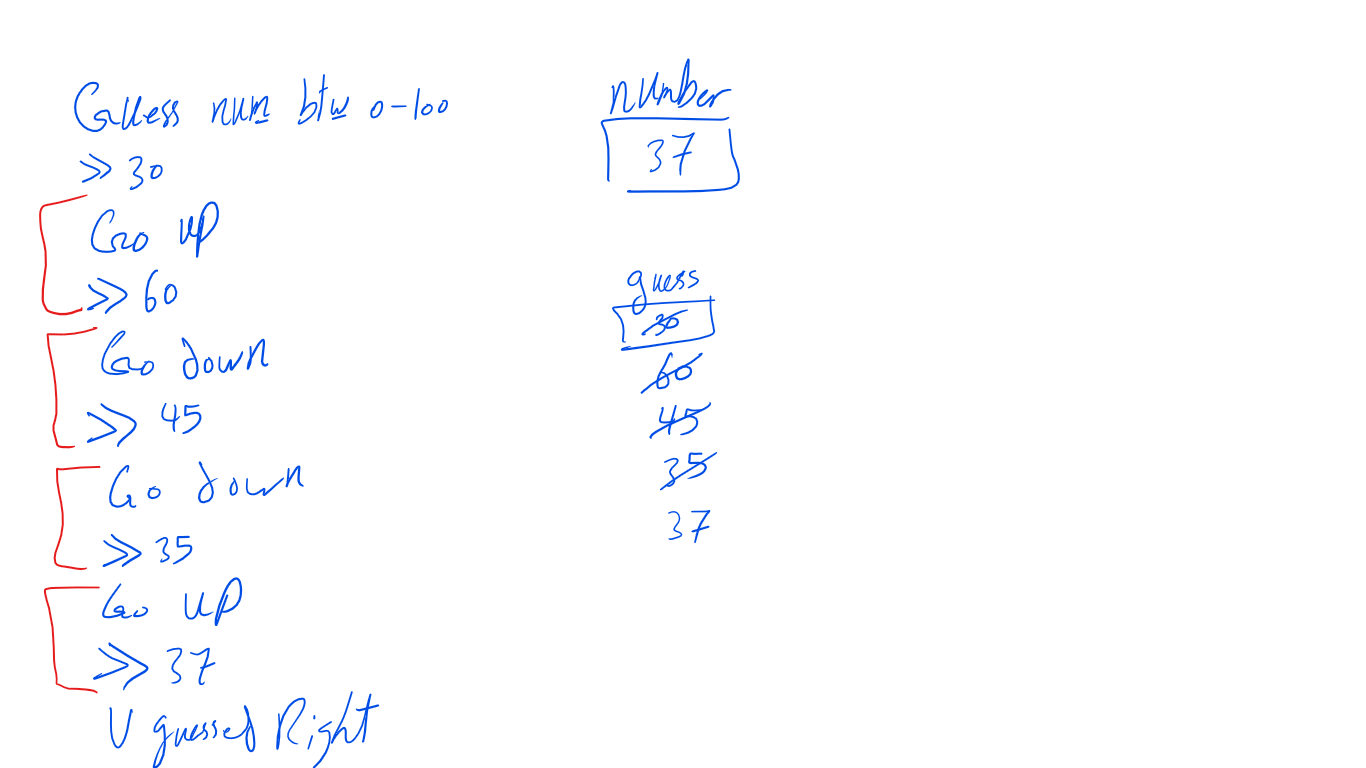 Guess num btw 0-100
>> 30
Go up
>> 60
Go down
>> 45
Go down
>> 35
Go up
>> 37
U guessed Right
number
37
guess
30
60
45
35
37